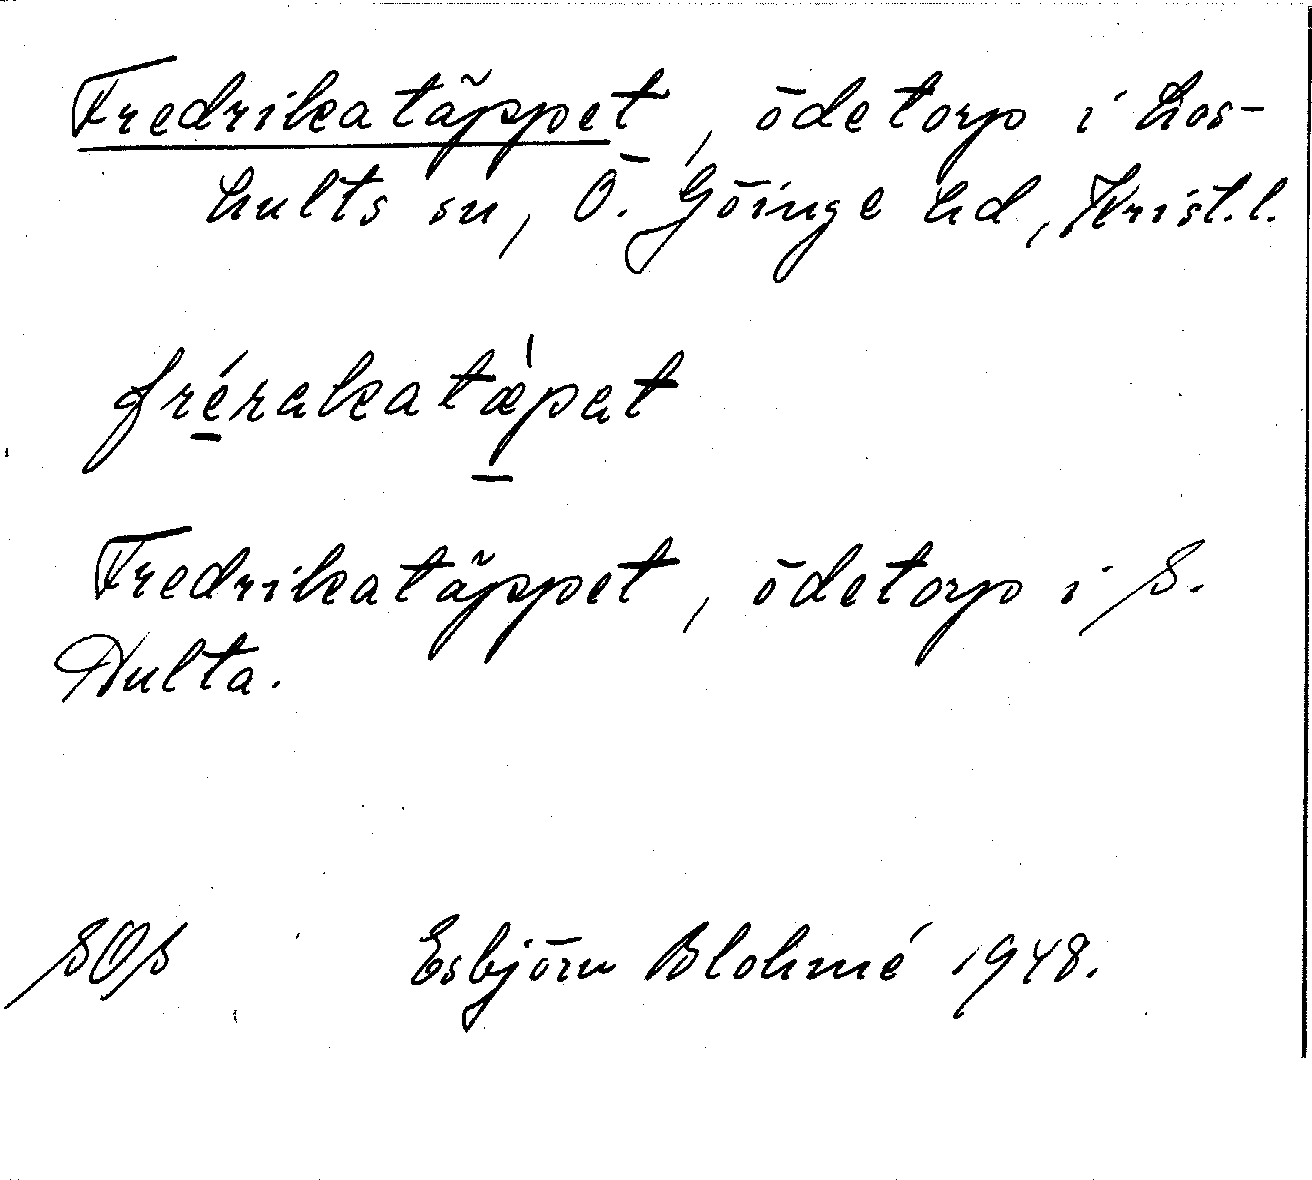 Fredrikatäppet, ödetorp i Los-
hults sn, Ö. Göinge hd, Krist.l.
frérakatæ̍pat
Fredrikatäppet, ödetorp i S.
Hulta.
SOS Esbjörn Blohmé 1948.